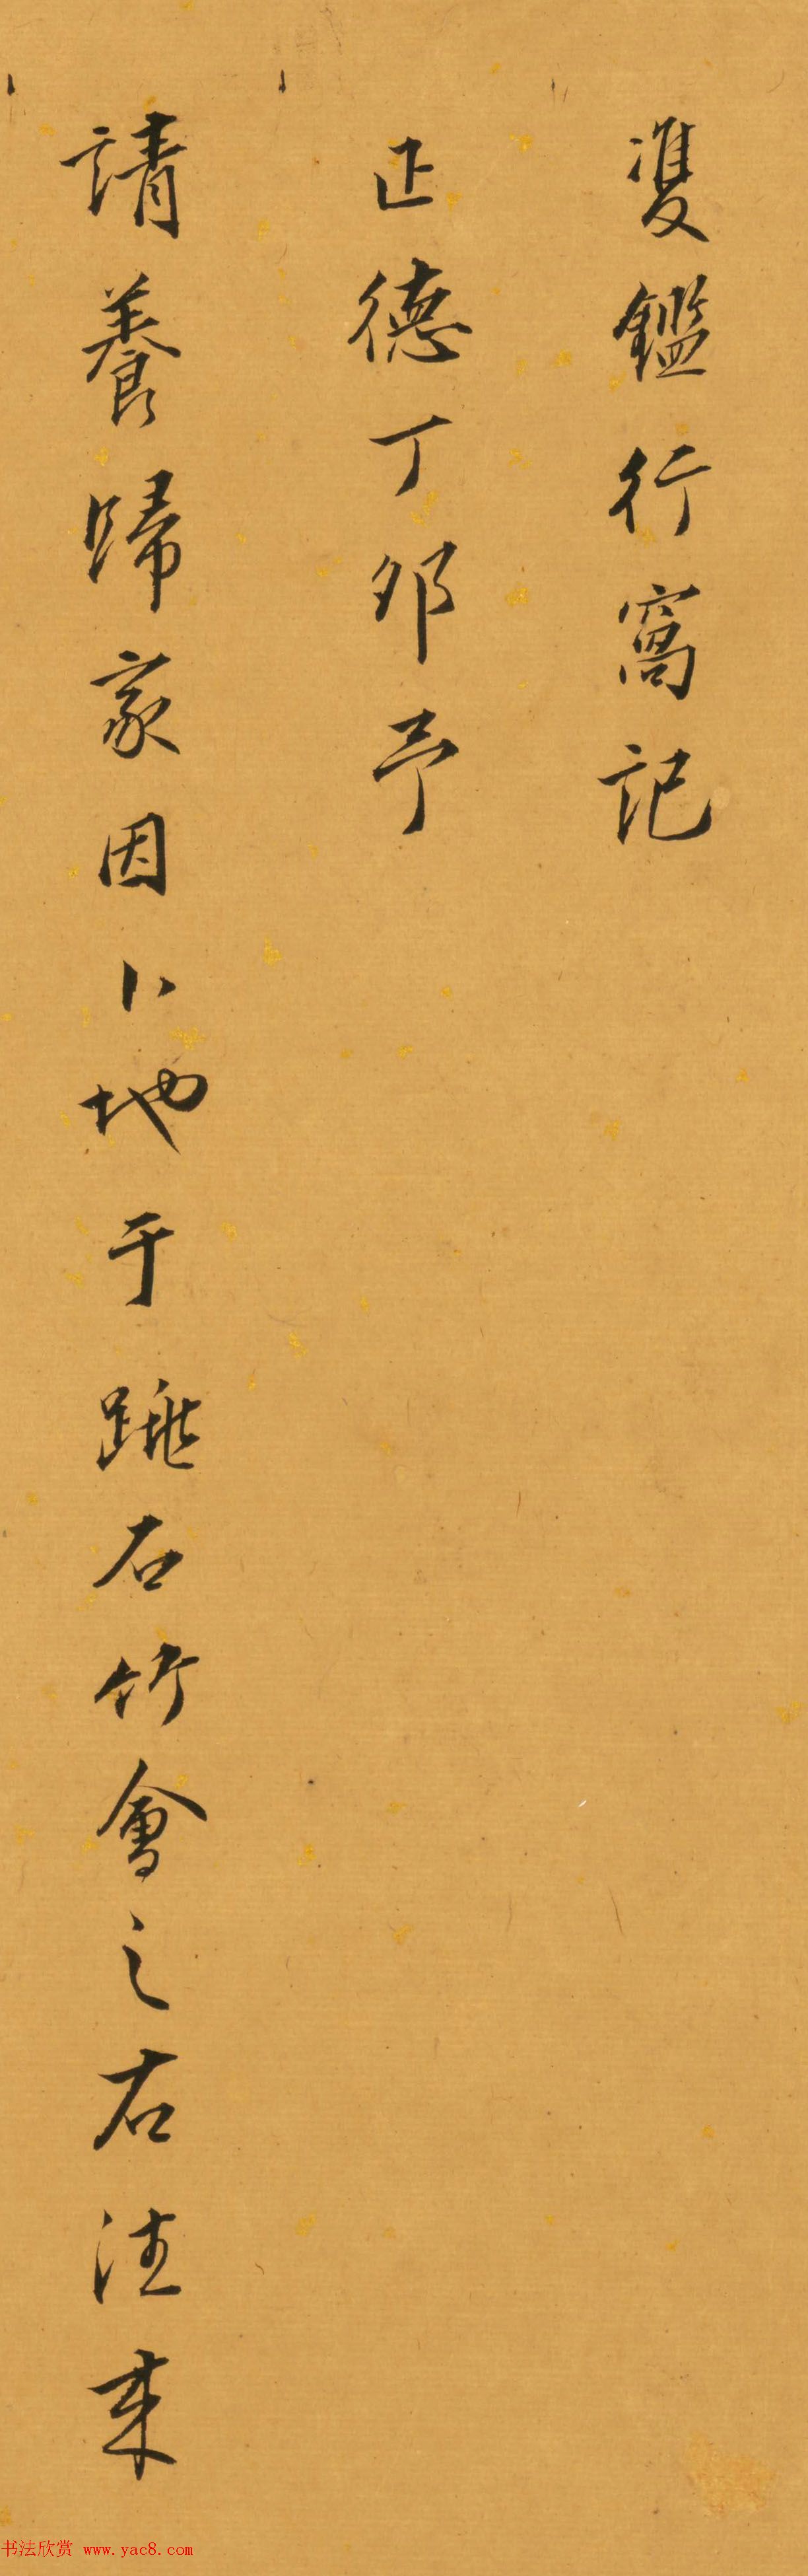 雙鑑行窩記
正德丁卯予
請養歸家因卜地于跳石竹會之右往來
书法欣赏 www.yac8.com